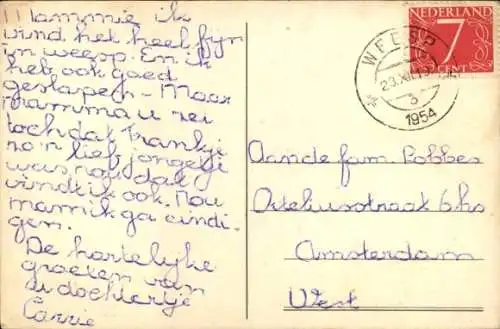 Mammie ik
vind het heel fijn
in weesp. En ik
heb ook goed
geslapen - Maar
mamma u zei
toch dat Frankje
zo'n lief jongetje
was, nou dat
vindt ik ook. Nou
mam ik ga eindi-
gen.
De hartelijke
groeten van
u dochtertje
Carrie
NEDERLAND
7
CENT
WEESP
23.XII.19
3
1954
Aan de fam. Robbes
Orteliusstraat 6 hs
Amsterdam
West